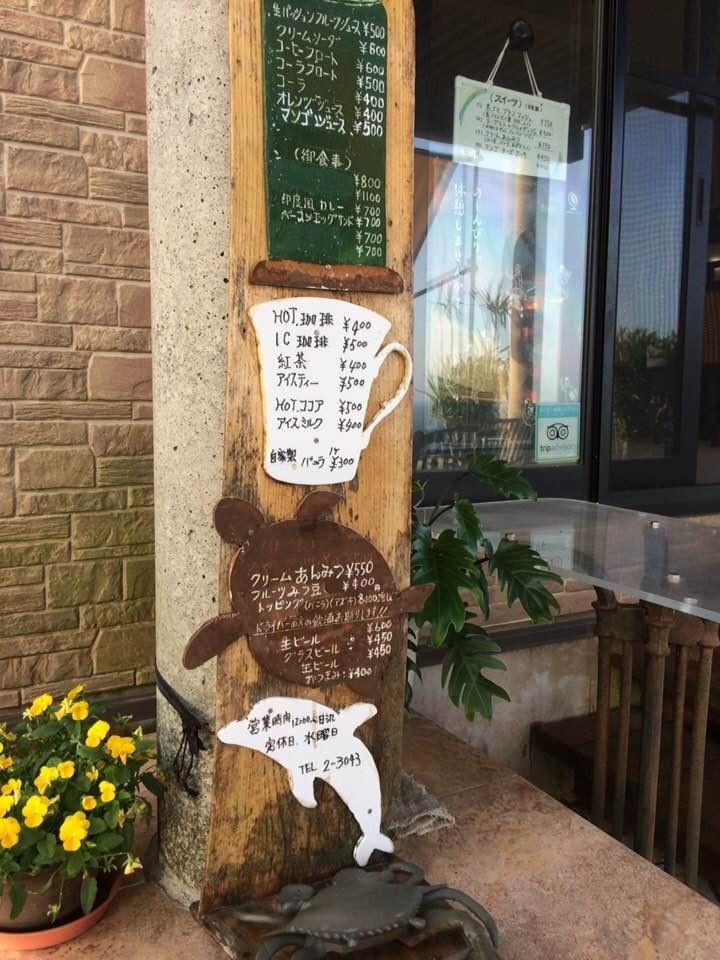 生パッションフルーツジュース ¥500
クリームソーダー ¥600
コーヒーフロート ¥600
コーラフロート ¥500
コーラ ¥400
オレンヂジュース ¥400
マンゴヂュース ¥500
(御食事)
¥800
¥1100
印度風カレー ¥700
ベーコンエッグサンド ¥700
¥700
¥700
HOT.珈琲 ¥400
IC 珈琲 ¥500
紅茶 ¥400
アイスティー ¥500
HOT.ココア ¥500
アイスミルク ¥400
自家製 バニラ 1ケ ¥300
クリームあんみつ ¥550
フルーツみつ豆 ¥400
トッピング(バニラ)(アズキ)各100増し
ドライバーの人の飲酒お断りします!!
生ビール : ¥600
グラスビール : ¥450
缶ビール ¥450
おつまみ : ¥100
営業時間 12:00〜日没
定休日. 水曜日
TEL 2-3043
(スイーツ)
tripadvisor